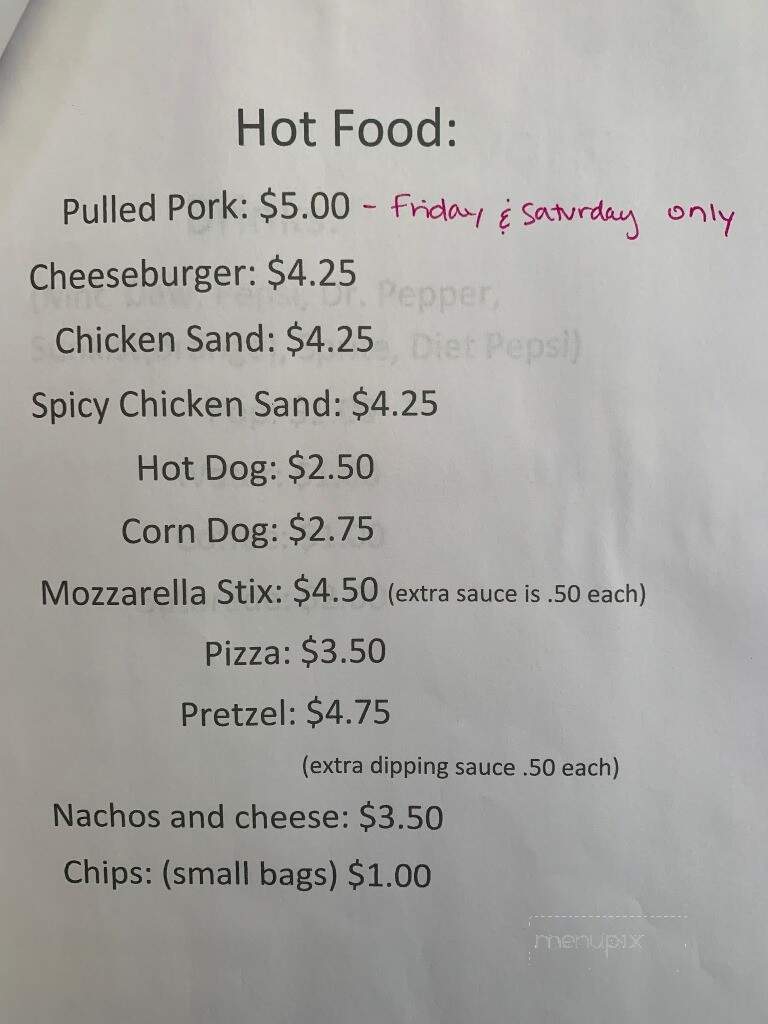 Hot Food:
Pulled Pork: $5.00 - Friday & Saturday only
Cheeseburger: $4.25
Pepper,
Chicken Sand: $4.25
, Diet Pepsi)
Spicy Chicken Sand: $4.25
Hot Dog: $2.50
Corn Dog: $2.75
Mozzarella Stix: $4.50 (extra sauce is .50 each)
Pizza: $3.50
Pretzel: $4.75
(extra dipping sauce .50 each)
Nachos and cheese: $3.50
Chips: (small bags) $1.00
menupix